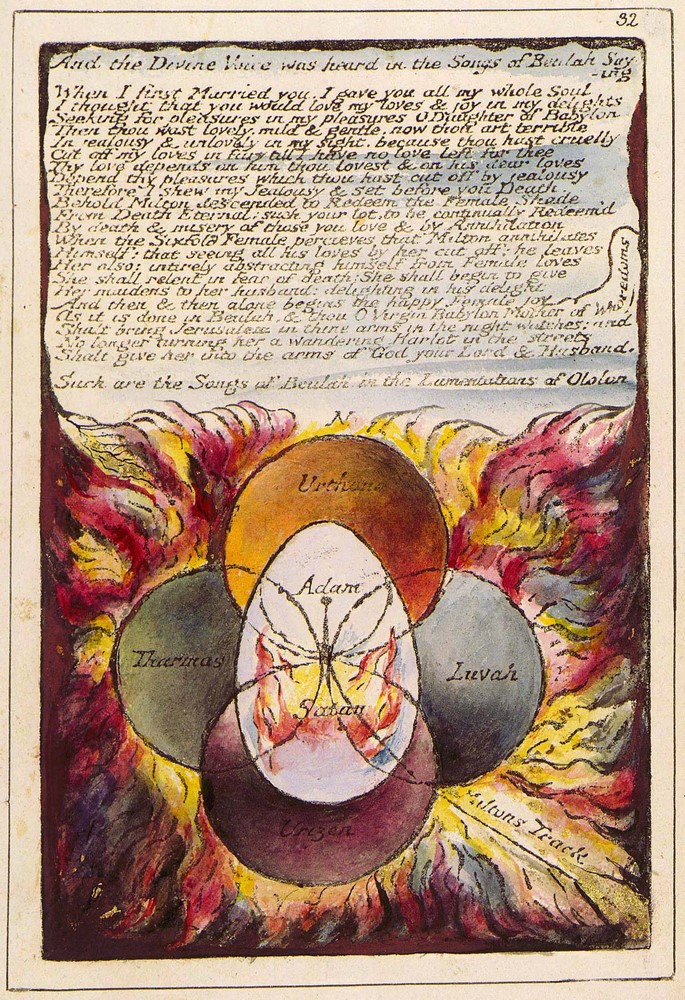 32
And the Divine Voice was heard in the Songs of Beulah Say-
-ing
When I first Married you, I gave you all my whole Soul
I thought that you would love my loves & joy in my delights
Seeking for pleasures in my pleasures O Daughter of Babylon
Then thou wast lovely, mild & gentle, now thou art terrible
In jealousy & unlovely in my sight, because thou hast cruelly
Cut off my loves in fury till I have no love left for thee
Thy love depends on him thou lovest & on his dear loves
Depend thy pleasures which thou hast cut off by jealousy
Therefore I shew my Jealousy & set before you Death.
Behold Milton descended to Redeem the Female Shade
From Death Eternal; such your lot, to be continually Redeem'd
By death & misery of those you love & by Annihilation
When the Sixfold Female percieves that Milton annihilates
Himself: that seeing all his loves by her cut off: he leaves
Her also: intirely abstracting himself from Female loves
She shall relent in fear of death: She shall begin to give
Her maidens to her husband: delighting in his delight
And then & then alone begins the happy Female joy
As it is done in Beulah, & thou O Virgin Babylon Mother of Who-
-redoms
Shalt bring Jerusalem in thine arms in the night watches; and
No longer turning her a wandering Harlot in the streets
Shalt give her into the arms of God your Lord & Husband.
Such are the Songs of Beulah in the Lamentations of Ololon
N
Urthona
Adam
Tharmas
Luvah
Satan
Urizen
Miltons Track